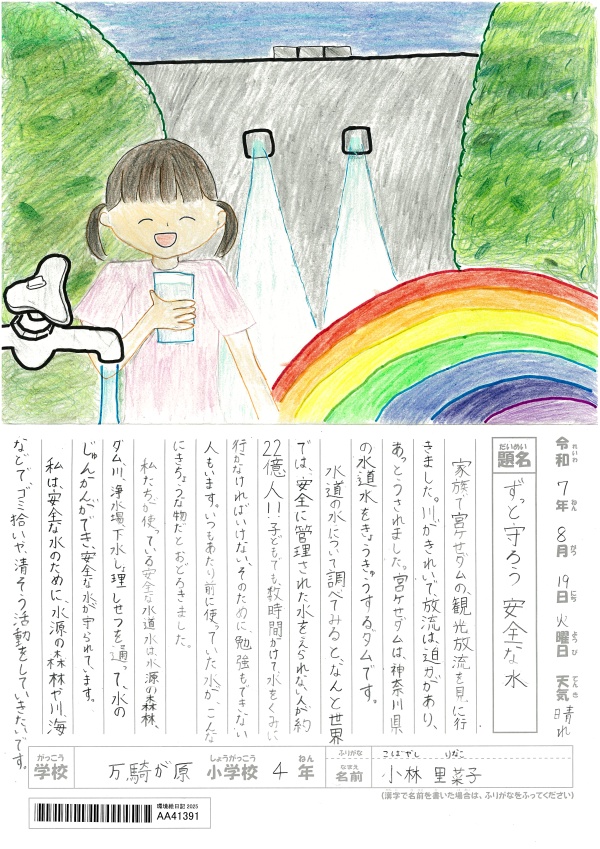 令和7年8月19日火曜日 天気 晴れ
れいわ ねん がつ にち ようび てんき
だいめい
題名 ずっと守ろう 安全な水
家族で宮ケ瀬ダムの、観光放流を見に行
きました。川がきれいで、放流は迫力があり、
あっとうされました。宮ケせダムは、神奈川県
の水道水をきょうきゅうするダムです。
水道の水について調べてみると、なんと世界
では、安全に管理された水をえられない人が約
22億人!!子どもでも数時間かけて水をくみに
行かなければいけない、そのために勉強もできない
人もいます。いつもあたり前に使っていた水が、こんな
にきちょうな物だとおどろきました。
私たちが使っている安全な水道水は水源の森林、
ダム、川、浄水場、下水しょ理しせつを通って、水の
じゅんかんができ、安全な水が守られています。
私は、安全な水のために、水源の森林や川、海
などで、ゴミ拾いや、清そう活動をしていきたいです。
がっこう しょうがっこう ねん
学校 万騎が原 小学校 4年
ふりがな こばやし りなこ
なまえ
名前 小林 里菜子
(漢字で名前を書いた場合は、ふりがなをふってください)
環境絵日記2025
AA41391